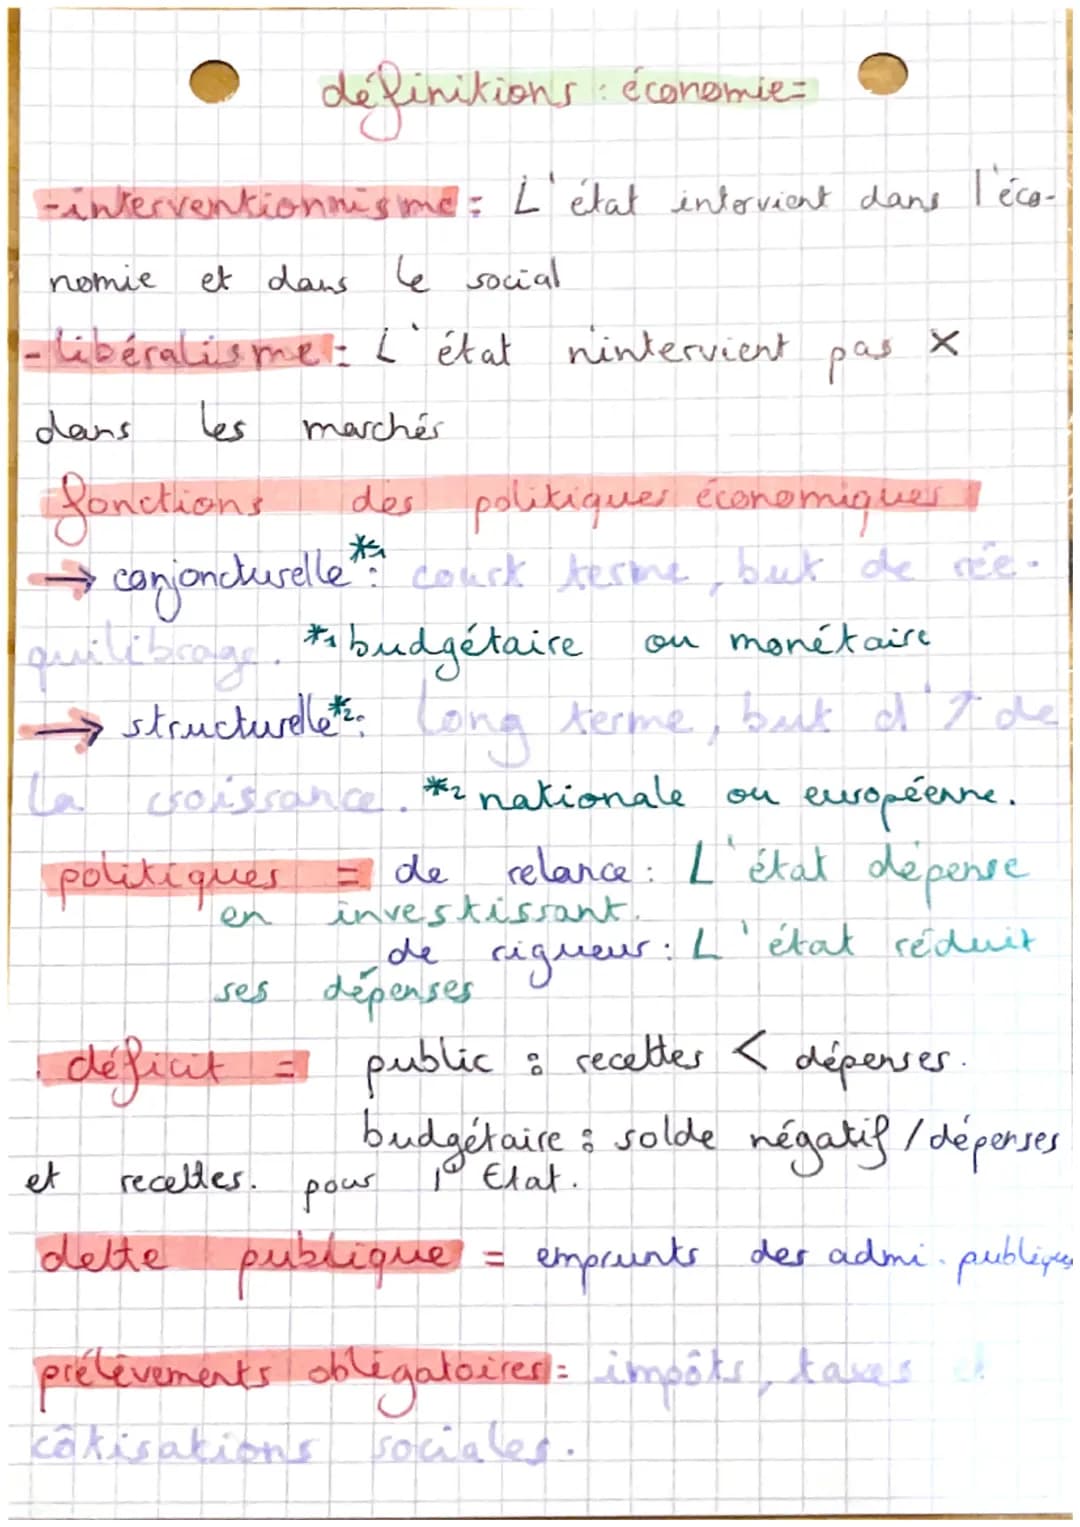 définitions : économie=
-interventionnisme = L'état intervient dans l'éco-
nomie et dans le social
-libéralisme = L'état n'intervient pas ×
dans les marchés
fonctions des politiques économiques
→ conjoncturelle*1: court terme, but de rée-
quilibrage. *1 budgétaire ou monétaire
→ structurelle*2: long terme, but d'↗ de
la croissance. *2 nationale ou européenne.
politiques = de relance : L'état dépense
en investissant.
de rigueur : L'état réduit
ses dépenses
déficit = public : recettes < dépenses.
budgétaire : solde négatif / dépenses
et recettes. pour l' Etat.
dette publique = emprunts des admi. publiques
prélèvements obligatoires = impôts, taxes et
côtisations sociales.